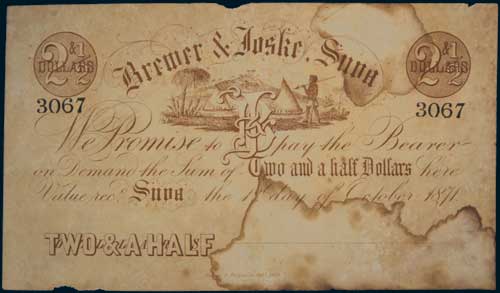 Brewer & Joske, Suva
2 & 1/2 DOLLARS
2 & 1/2 DOLLARS
3067
3067
We Promise to pay the Bearer
on Demand the Sum of Two and a half Dollars here
Value recd. Suva the 1st day of October 1871
TWO & A HALF